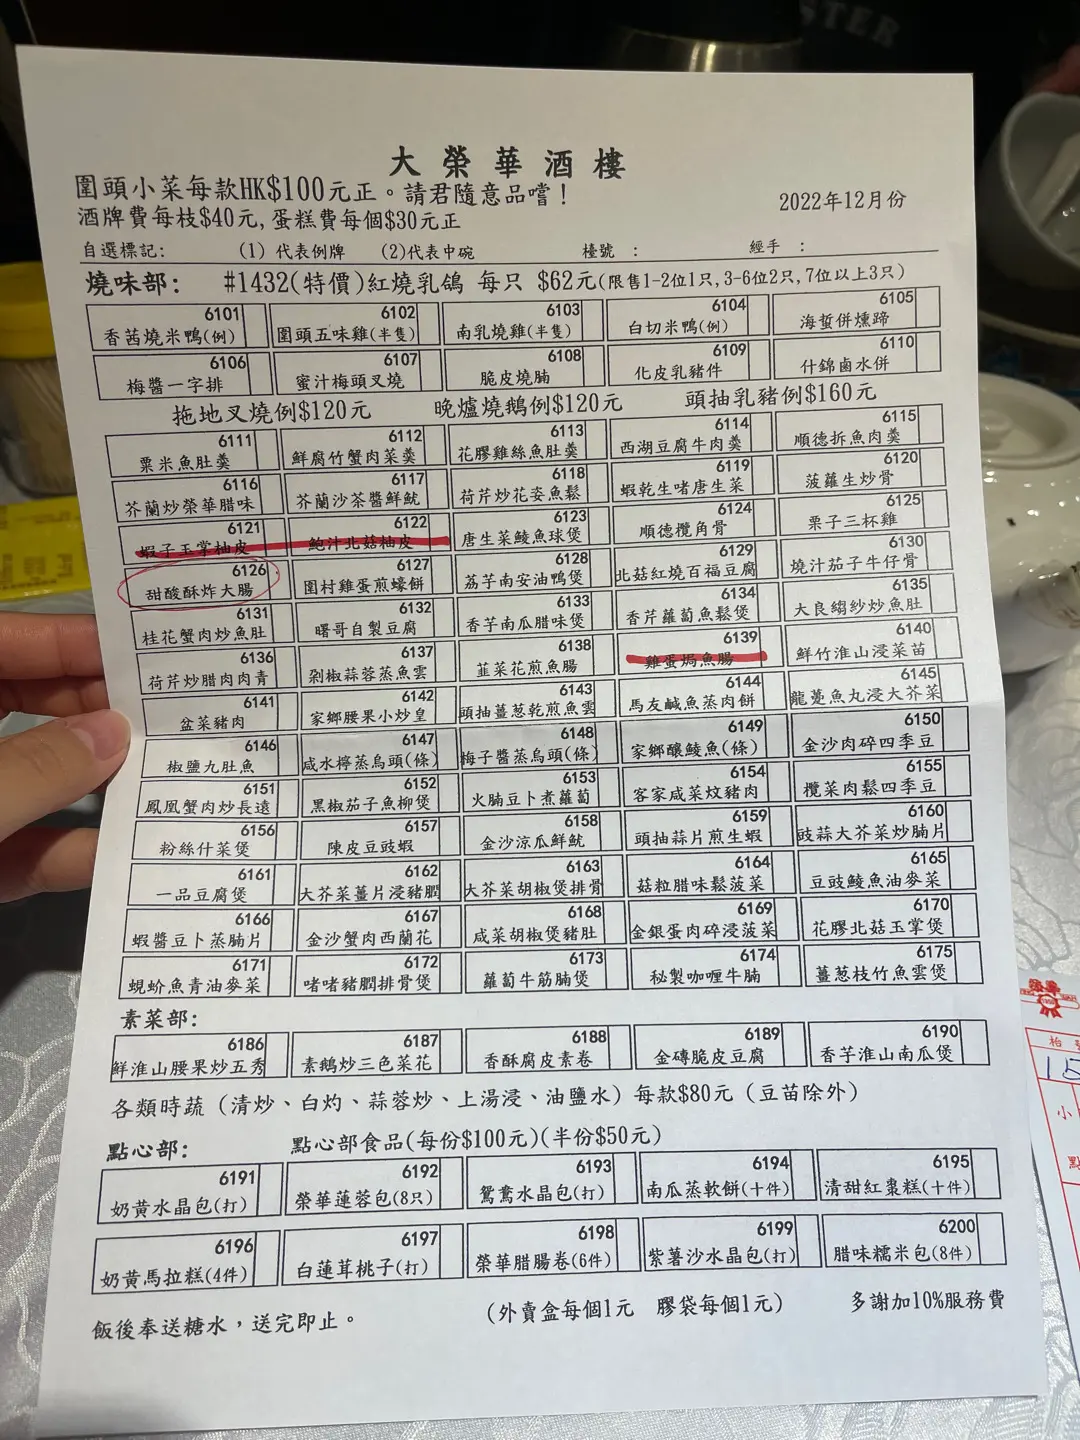 大榮華酒樓
圍頭小菜每款HK$100元正。請君隨意品嚐！
2022年12月份
酒牌費每枝$40元, 蛋糕費每個$30元正
自選標記: (1) 代表例牌 (2)代表中碗 檯號 : 經手 :
燒味部: #1432(特價)紅燒乳鴿 每只 $62元(限售1-2位1只,3-6位2只,7位以上3只)
6101 6102 6103 6104 6105
香茜燒米鴨(例) 圍頭五味雞(半隻) 南乳燒雞(半隻) 白切米鴨(例) 海蜇併燻蹄
6106 6107 6108 6109 6110
梅醬一字排 蜜汁梅頭叉燒 脆皮燒腩 化皮乳豬件 什錦鹵水併
拖地叉燒例$120元 晚爐燒鵝例$120元 頭抽乳豬例$160元
6111 6112 6113 6114 6115
粟米魚肚羹 鮮腐竹蟹肉菜羹 花膠雞絲魚肚羹 西湖豆腐牛肉羹 順德拆魚肉羹
6116 6117 6118 6119 6120
芥蘭炒榮華腊味 芥蘭沙茶醬鮮魷 荷芹炒花姿魚鬆 蝦乾生啫唐生菜 菠蘿生炒骨
6121 6122 6123 6124 6125
蝦子玉掌柚皮 鮑汁北菇柚皮 唐生菜鯪魚球煲 順德欖角骨 栗子三杯雞
6126 6127 6128 6129 6130
甜酸酥炸大腸 圍村雞蛋煎蠔餅 荔芋南安油鴨煲 北菇紅燒百福豆腐 燒汁茄子牛仔骨
6131 6132 6133 6134 6135
桂花蟹肉炒魚肚 曙哥自製豆腐 香芋南瓜腊味煲 香芹蘿蔔魚鬆煲 大良縐紗炒魚肚
6136 6137 6138 6139 6140
荷芹炒腊肉肉青 剁椒蒜蓉蒸魚雲 韮菜花煎魚腸 雞蛋焗魚腸 鮮竹淮山浸菜苗
6141 6142 6143 6144 6145
盆菜豬肉 家鄉腰果小炒皇 頭抽薑葱乾煎魚雲 馬友鹹魚蒸肉餅 龍躉魚丸浸大芥菜
6146 6147 6148 6149 6150
椒鹽九肚魚 咸水檸蒸烏頭(條) 梅子醬蒸烏頭(條) 家鄉釀鯪魚(條) 金沙肉碎四季豆
6151 6152 6153 6154 6155
鳳凰蟹肉炒長遠 黑椒茄子魚柳煲 火腩豆卜煮蘿蔔 客家咸菜炆豬肉 欖菜肉鬆四季豆
6156 6157 6158 6159 6160
粉絲什菜煲 陳皮豆豉蝦 金沙涼瓜鮮魷 頭抽蒜片煎生蝦 豉蒜大芥菜炒腩片
6161 6162 6163 6164 6165
一品豆腐煲 大芥菜薑片浸豬膶 大芥菜胡椒煲排骨 菇粒腊味鬆菠菜 豆豉鯪魚油麥菜
6166 6167 6168 6169 6170
蝦醬豆卜蒸腩片 金沙蟹肉西蘭花 咸菜胡椒煲豬肚 金銀蛋肉碎浸菠菜 花膠北菇玉掌煲
6171 6172 6173 6174 6175
蜆蚧魚青油麥菜 啫啫豬膶排骨煲 蘿蔔牛筋腩煲 秘製咖喱牛腩 薑葱枝竹魚雲煲
素菜部:
6186 6187 6188 6189 6190
鮮淮山腰果炒五秀 素鵝炒三色菜花 香酥腐皮素卷 金磚脆皮豆腐 香芋淮山南瓜煲
各類時蔬 (清炒、白灼、蒜蓉炒、上湯浸、油鹽水) 每款$80元 (豆苗除外)
點心部: 點心部食品(每份$100元)(半份$50元)
6191 6192 6193 6194 6195
奶黃水晶包(打) 榮華蓮蓉包(8只) 鴛鴦水晶包(打) 南瓜蒸軟餅(十件) 清甜紅棗糕(十件)
6196 6197 6198 6199 6200
奶黃馬拉糕(4件) 白蓮茸桃子(打) 榮華腊腸卷(6件) 紫薯沙水晶包(打) 腊味糯米包(8件)
飯後奉送糖水，送完即止。 (外賣盒每個1元 膠袋每個1元) 多謝加10%服務費